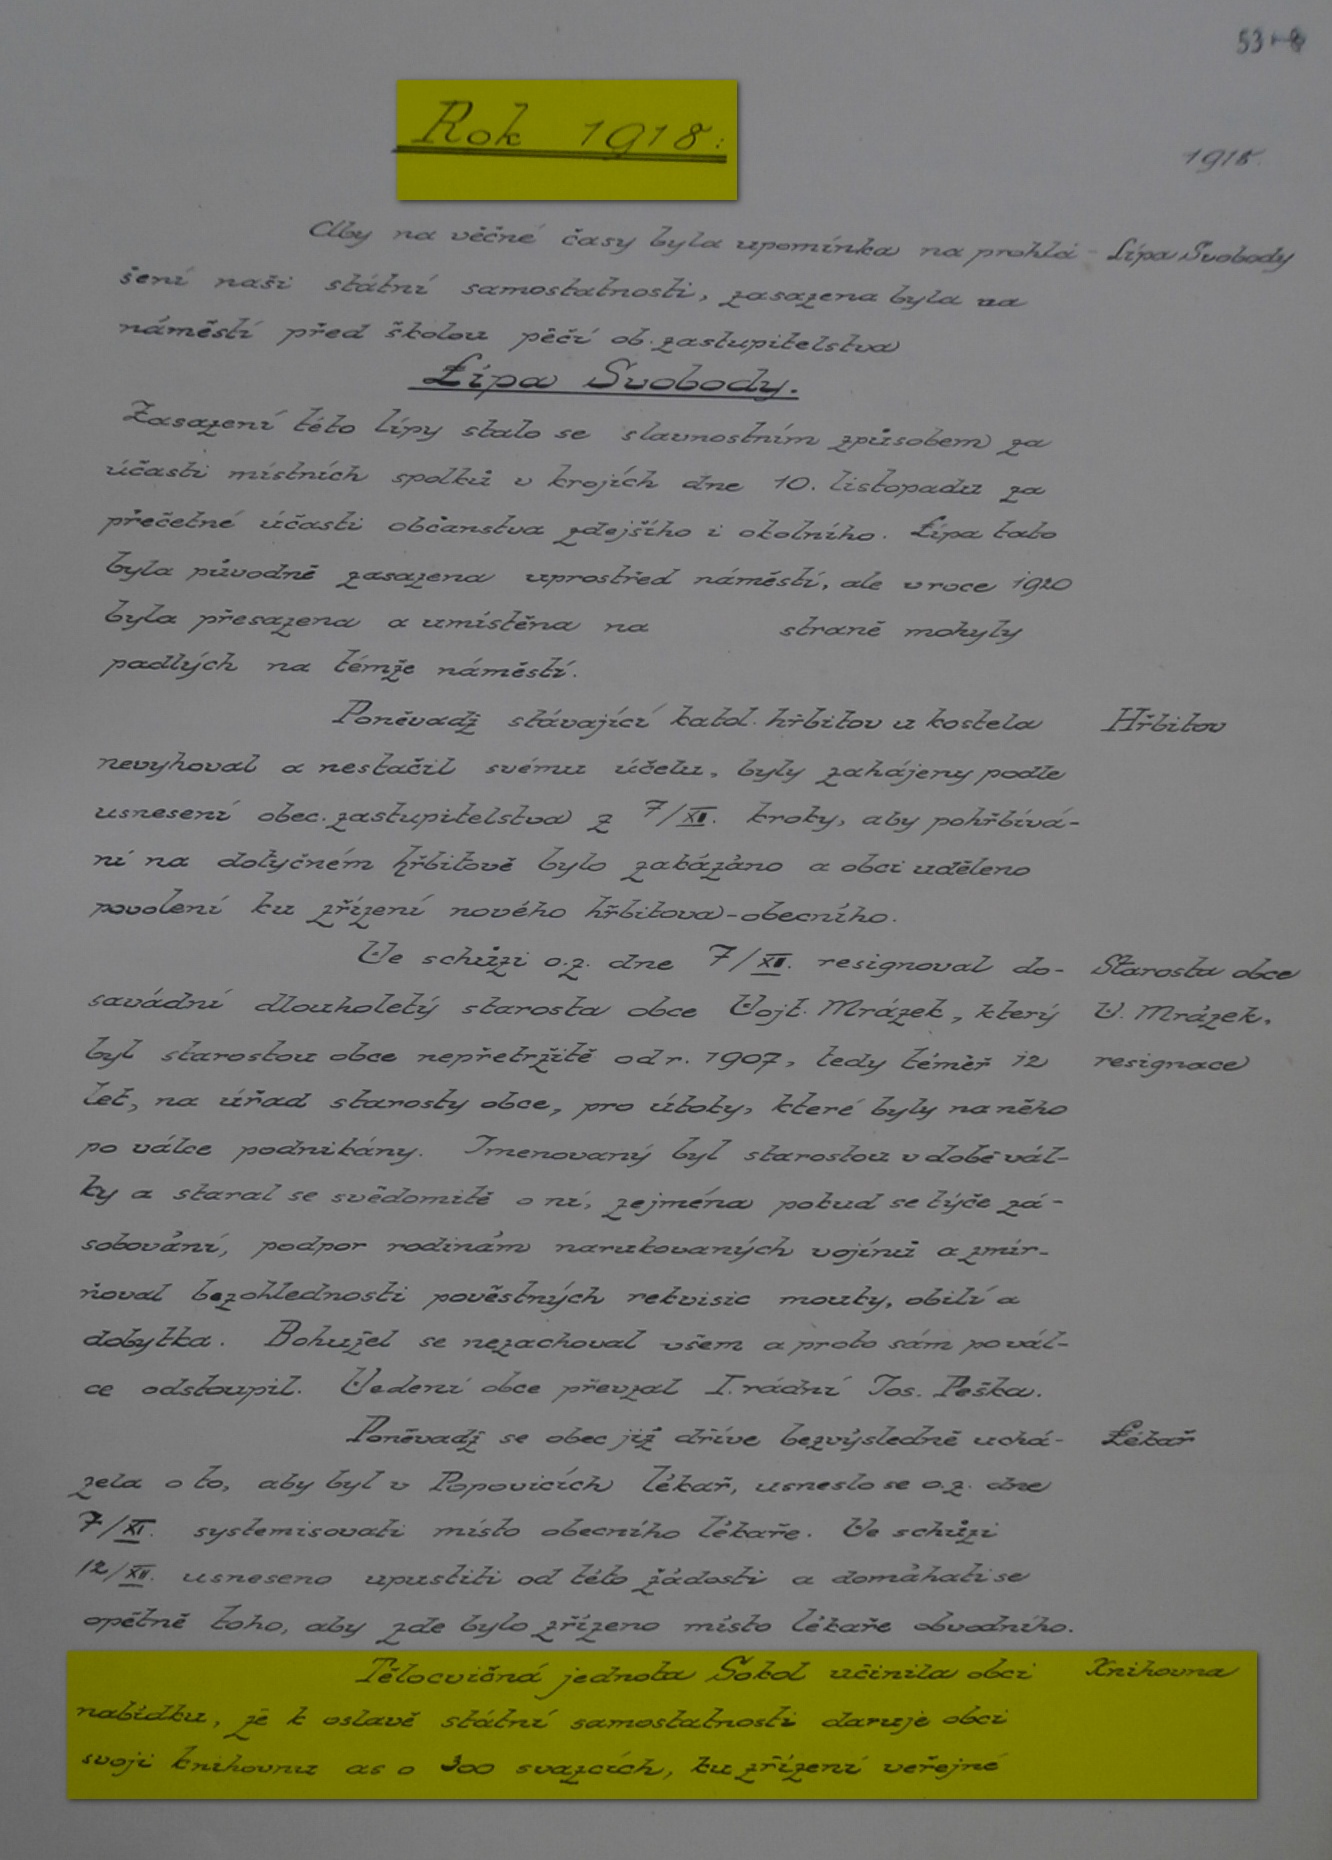 53
Rok 1918:
1918.
Aby na věčné časy byla upomínka na prohlá- Lípa Svobody
šení naší státní samostatnosti, zasazena byla na
náměstí před školou péčí ob. zastupitelstva
Lípa Svobody.
Zasazení této lípy stalo se slavnostním způsobem za
účasti místních spolků v krojích dne 10. listopadu za
přečetné účasti občanstva zdejšího i okolního. Lípa tato
byla původně zasazena uprostřed náměstí, ale v roce 1920
byla přesazena a umístěna na straně mohyly
padlých na témže náměstí.
Poněvadž stávající katol. hřbitov u kostela Hřbitov
nevyhoval a nestačil svému účelu, byly zahájeny podle
usnesení obec. zastupitelstva z 7/XII. kroky, aby pohřbívá-
ní na dotyčném hřbitově bylo zakázáno a obci uděleno
povolení ku zřízení nového hřbitova-obecního.
Ve schůzi o.z. dne 7/XII. resignoval do- Starosta obce
savádní dlouholetý starosta obce Vojt. Mrázek, který V. Mrázek,
byl starostou obce nepřetržitě od r. 1907, tedy téměř 12 resignace
let, na úřad starosty obce, pro útoky, které byly na něho
po válce podnikány. Jmenovaný byl starostou v době vál-
ky a staral se svědomitě o ni, zejména pokud se týče zá-
sobování, podpor rodinám narukovaných vojínů a zmír-
ňoval bezohlednosti pověstných rekvisic mouky, obilí a
dobytka. Bohužel se nezachoval všem a proto sám po vál-
ce odstoupil. Vedení obce převzal I. rádní Jos. Peška.
Poněvadž se obec již dříve bezvýsledně uchá- Lékař
zela o to, aby byl v Popovicích lékař, usneslo se o.z. dne
7/XI. systemisovati místo obecního lékaře. Ve schůzi
12/XII. usneseno upustiti od této žádosti a domáhati se
opětně toho, aby zde bylo zřízeno místo lékaře obvodního.
Tělocvičná jednota Sokol učinila obci Knihovna
nabídku, že k oslavě státní samostatnosti daruje obci
svoji knihovnu as o 300 svazcích, ku zřízení veřejné